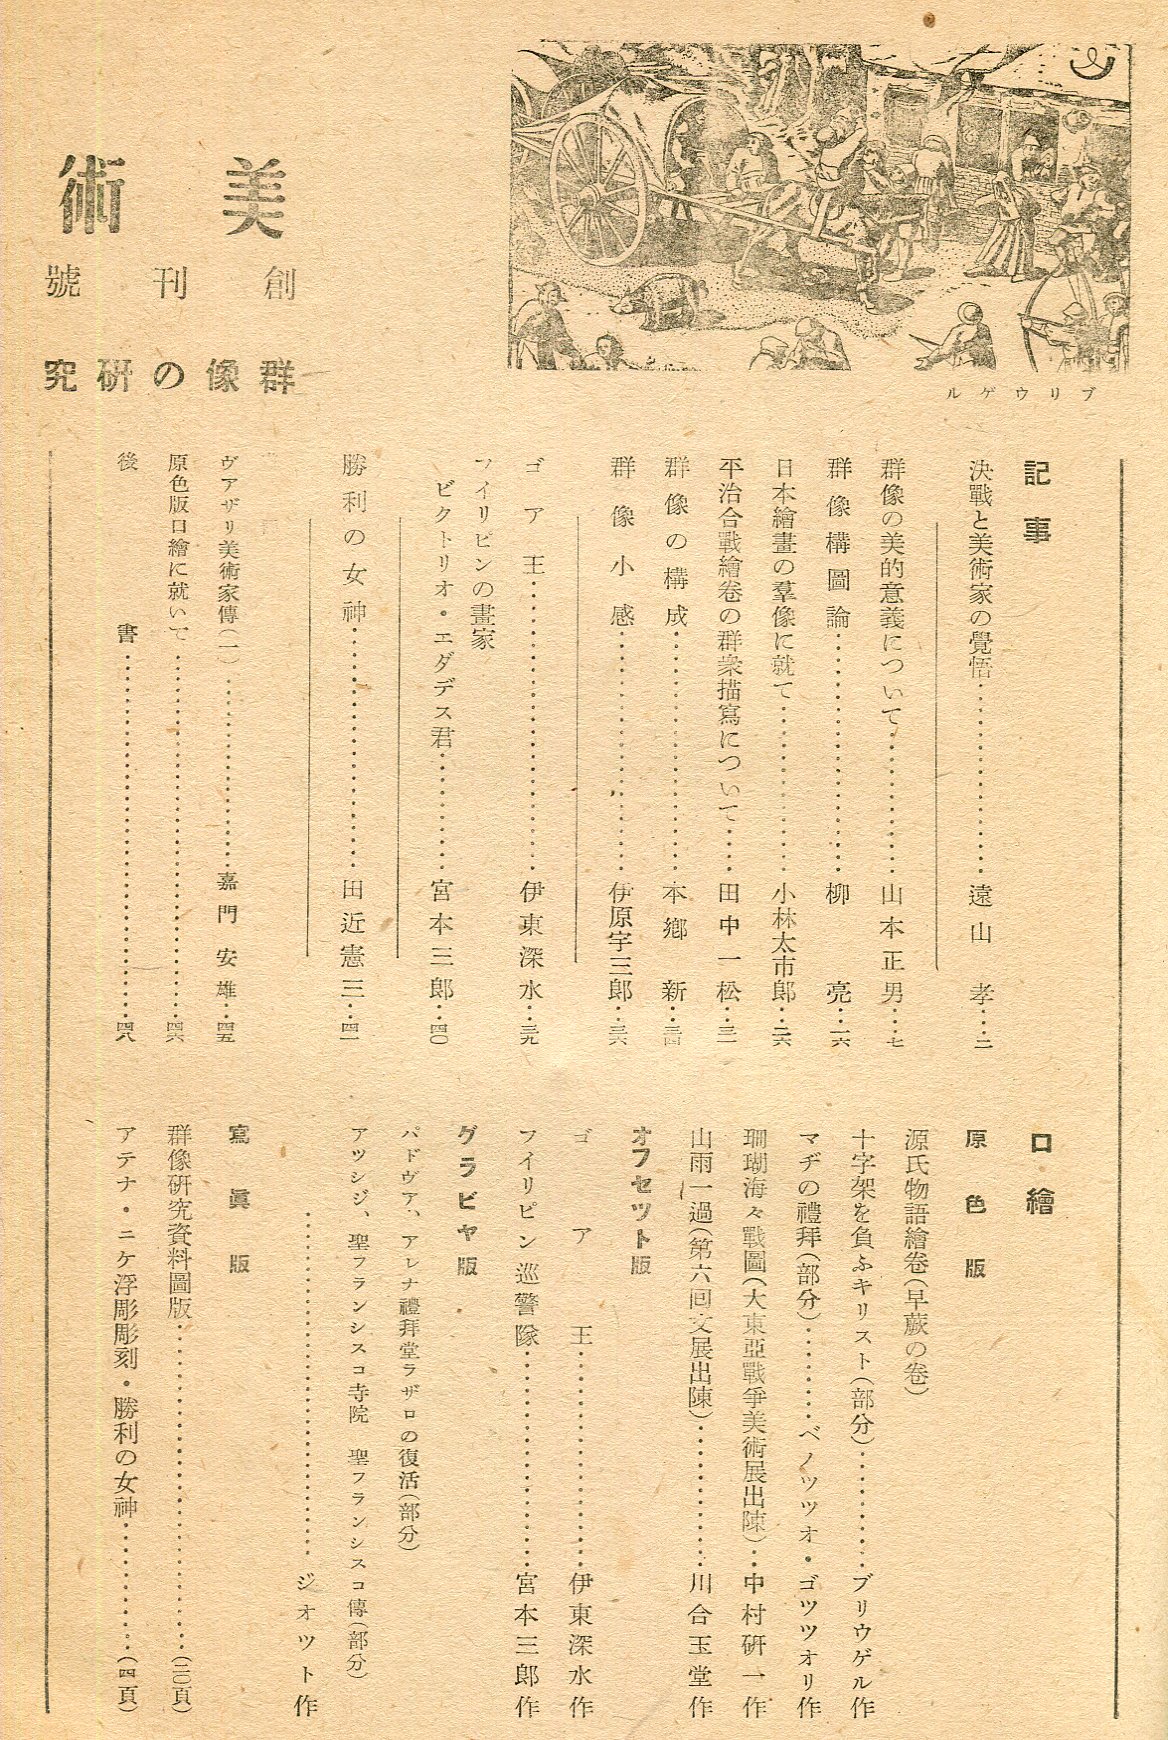 美術
創刊號
群像の研究
ブリウゲル
記事
決戰と美術家の覺悟……遠山孝…二
群像の美的意義について……山本正男…七
群像構圖論……柳亮…一六
日本繪畫の羣像に就て……小林太市郎…二六
平治合戰繪卷の群衆描寫について……田中一松…三一
群像の構成……本鄕新…三四
群像小感……伊原宇三郎…三六
ゴア王……伊東深水…三九
フイリピンの畫家
ビクトリオ・エダデス君……宮本三郎…四〇
勝利の女神……田近憲三…四一
ヴアザリ美術家傳(一)……嘉門安雄…四五
原色版口繪に就いて……四六
後書……四八
口繪
原色版
源氏物語繪卷(早蕨の卷)
十字架を負ふキリスト(部分)……ブリウゲル作
マヂの禮拜(部分)……ベノツツオ・ゴツツオリ作
珊瑚海々戰圖(大東亞戰爭美術展出陳)…中村硏一作
山雨一過(第六回文展出陳)……川合玉堂作
オフセツト版
ゴア王……伊東深水作
フイリピン巡警隊……宮本三郎作
グラビヤ版
パドヴア、アレナ禮拜堂ラザロの復活(部分)
アツシジ、聖フランシスコ寺院 聖フランシスコ傳(部分)
……ジオツト作
寫眞版
群像硏究資料圖版……(二〇頁)
アテナ・ニケ浮彫彫刻・勝利の女神……(四頁)